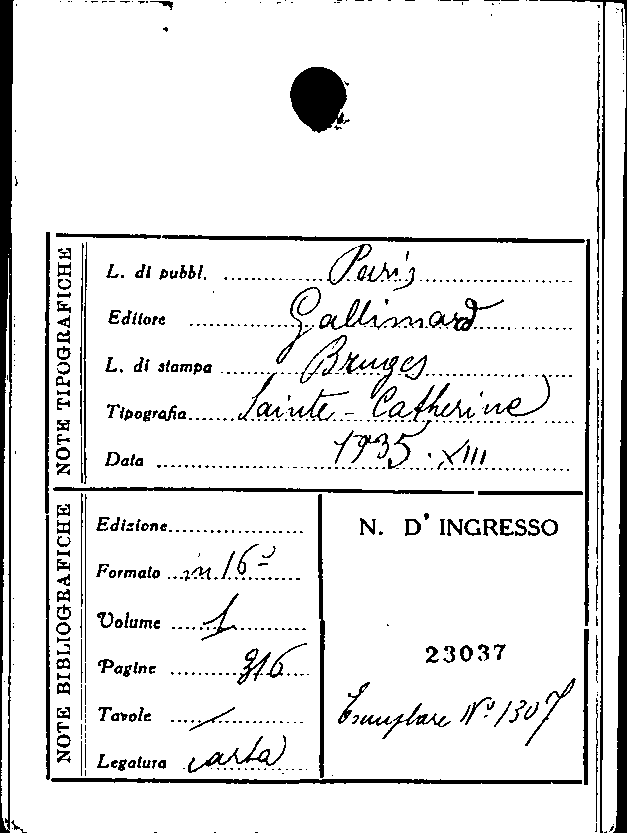 NOTE TIPOGRAFICHE
L. di pubbl. Paris
Editore Gallimard
L. di stampa Bruges
Tipografia Sainte-Catherine
Data 1935.XIII
NOTE BIBLIOGRAFICHE
Edizione
Formato in 16º
Volume 1
Pagine 316
Tavole /
Legatura carta
N. D'INGRESSO
23037
Esemplare Nº 1307